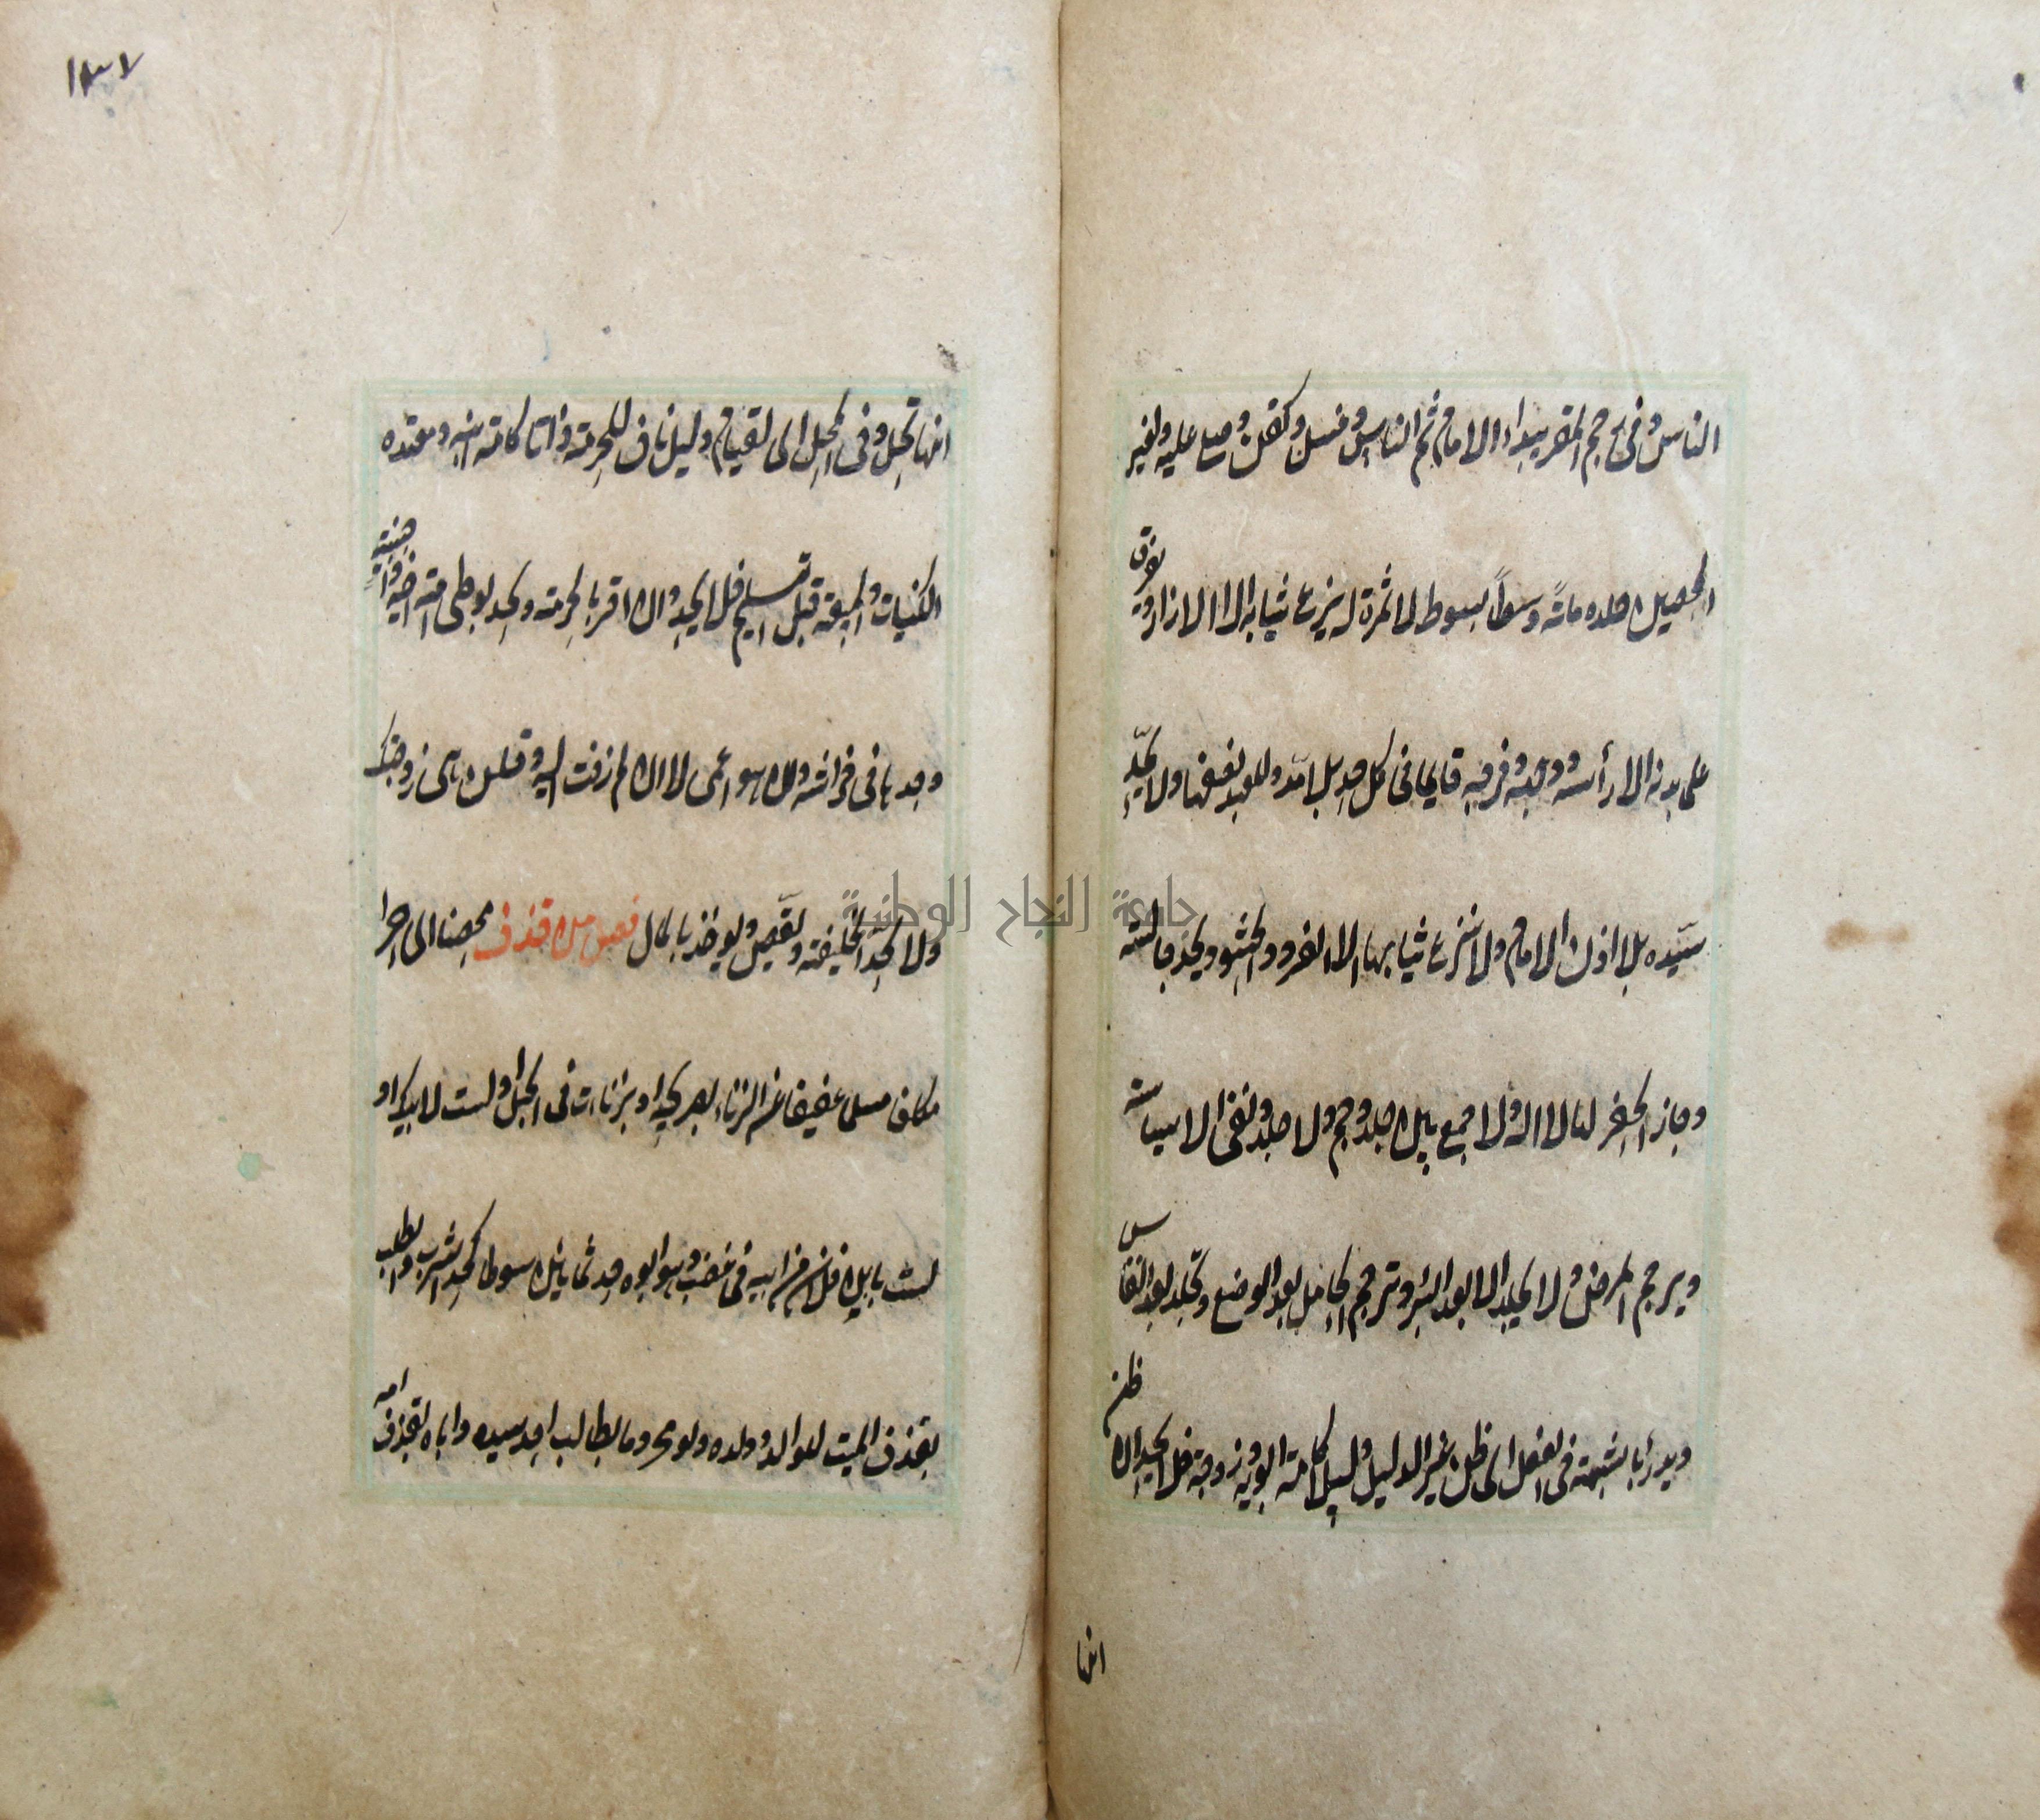 الناس وفى رجم المقر يبداء الامام ثم الناس وغسل وكفن وصلى عليه ولغير
المحصن جلده مائة وسطاً بسوط لا ثمرة له ينزع ثيابه الا الازار ويفرق
على بدنه الا رأسه ووجهه وفرجه قايما فى كل حد بلا مد وللعبد نصفها ولا يحدّ
سيّده بلا اذن الامام ولا ينزع ثيابها الا الفرو والحشو ويحد جالسة
وجاز الحفر لها لا له ولا جمع بين جلد ورجم ولا جلد ونفى الا سياسة
ويرجم المرض ولا يجلد الا بعد البرء وترجم الحامل بعد الوضع وتجلد بعد النفاس
ويدرأ بالشبهة فى الفعل اى ظن غير الدليل دليلا كامة ابويه وزوجة فلا يحد ان ظن
انها
١٣٧
انها تحل وفى المحل اى لقيام دليل ناف للحرمة ذاتا كامة ابنه ومعتدة
الكنايات والمبيعة قبل تسليم فلا يحد وان اقر بالحرمة وحد بوطى امة اخيه واجنبية
وجدها فى فراشه وان هو اعمى لا ان زفت اليه وقلن هى زوجتك
ولا يحد الخليفة ويقتص ويوخذ بالمال فصل من قذف محصنا اى حرا
مكلفا مسلما عفيفا عن الزناء بصريحه او بزنات فى الجبل او لست لابيك او
لست بابن فلان فى غضب وهو ابوه حد ثمانين سوطا كحد الشرب والطلب
بقذف الميت للوالد وولده ولو محروما ولا يطالب احد سيده واباه بقذف امه
جامعة النجاح الوطنية